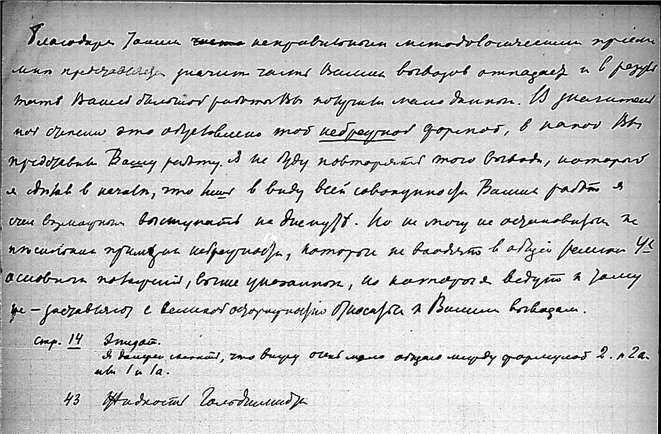 Благодаря таким неправильным методологическим приема
ми представляем значит. часть Ваших выводов отпадает и в резуль
тате Вашей большой работы Вы получили мало данных. В значитель
ной степени это обусловлено той небрежной формой, в какой Вы
представили Вашу работу. Я не буду повторять того вывода, который
я сделал в начале, что в виду всей совокупности Ваших работ я
счел возможным выступать на диспуте. Но не могу не остановиться на
нескольких примерах небрежности, которые не входят в общей
основных положений, выше указанных, но которые ведут к тому
же – заставляют с великой осторожностью относиться к Вашим выводам.
стр. 14
Я должен сказать, что вижу очень мало общего между формулой 2. и 2а.
или 1 и 1а.
43 Жидкость Гольдшмидта